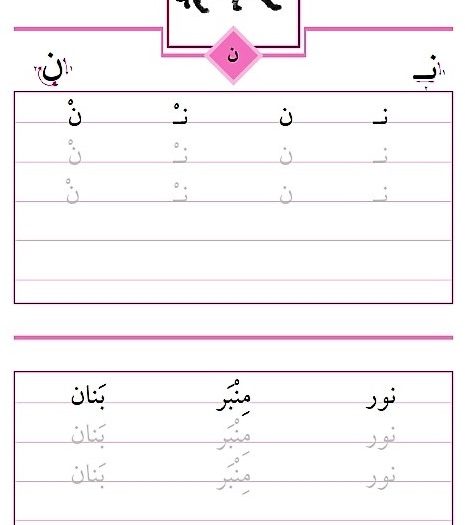 ن
نـ ن
نـ ن نـْ نْ
نـ ن نـْ نْ
نـ ن نـْ نْ
نور مِنْبَر بَنان
نور مِنْبَر بَنان
نور مِنْبَر بَنان